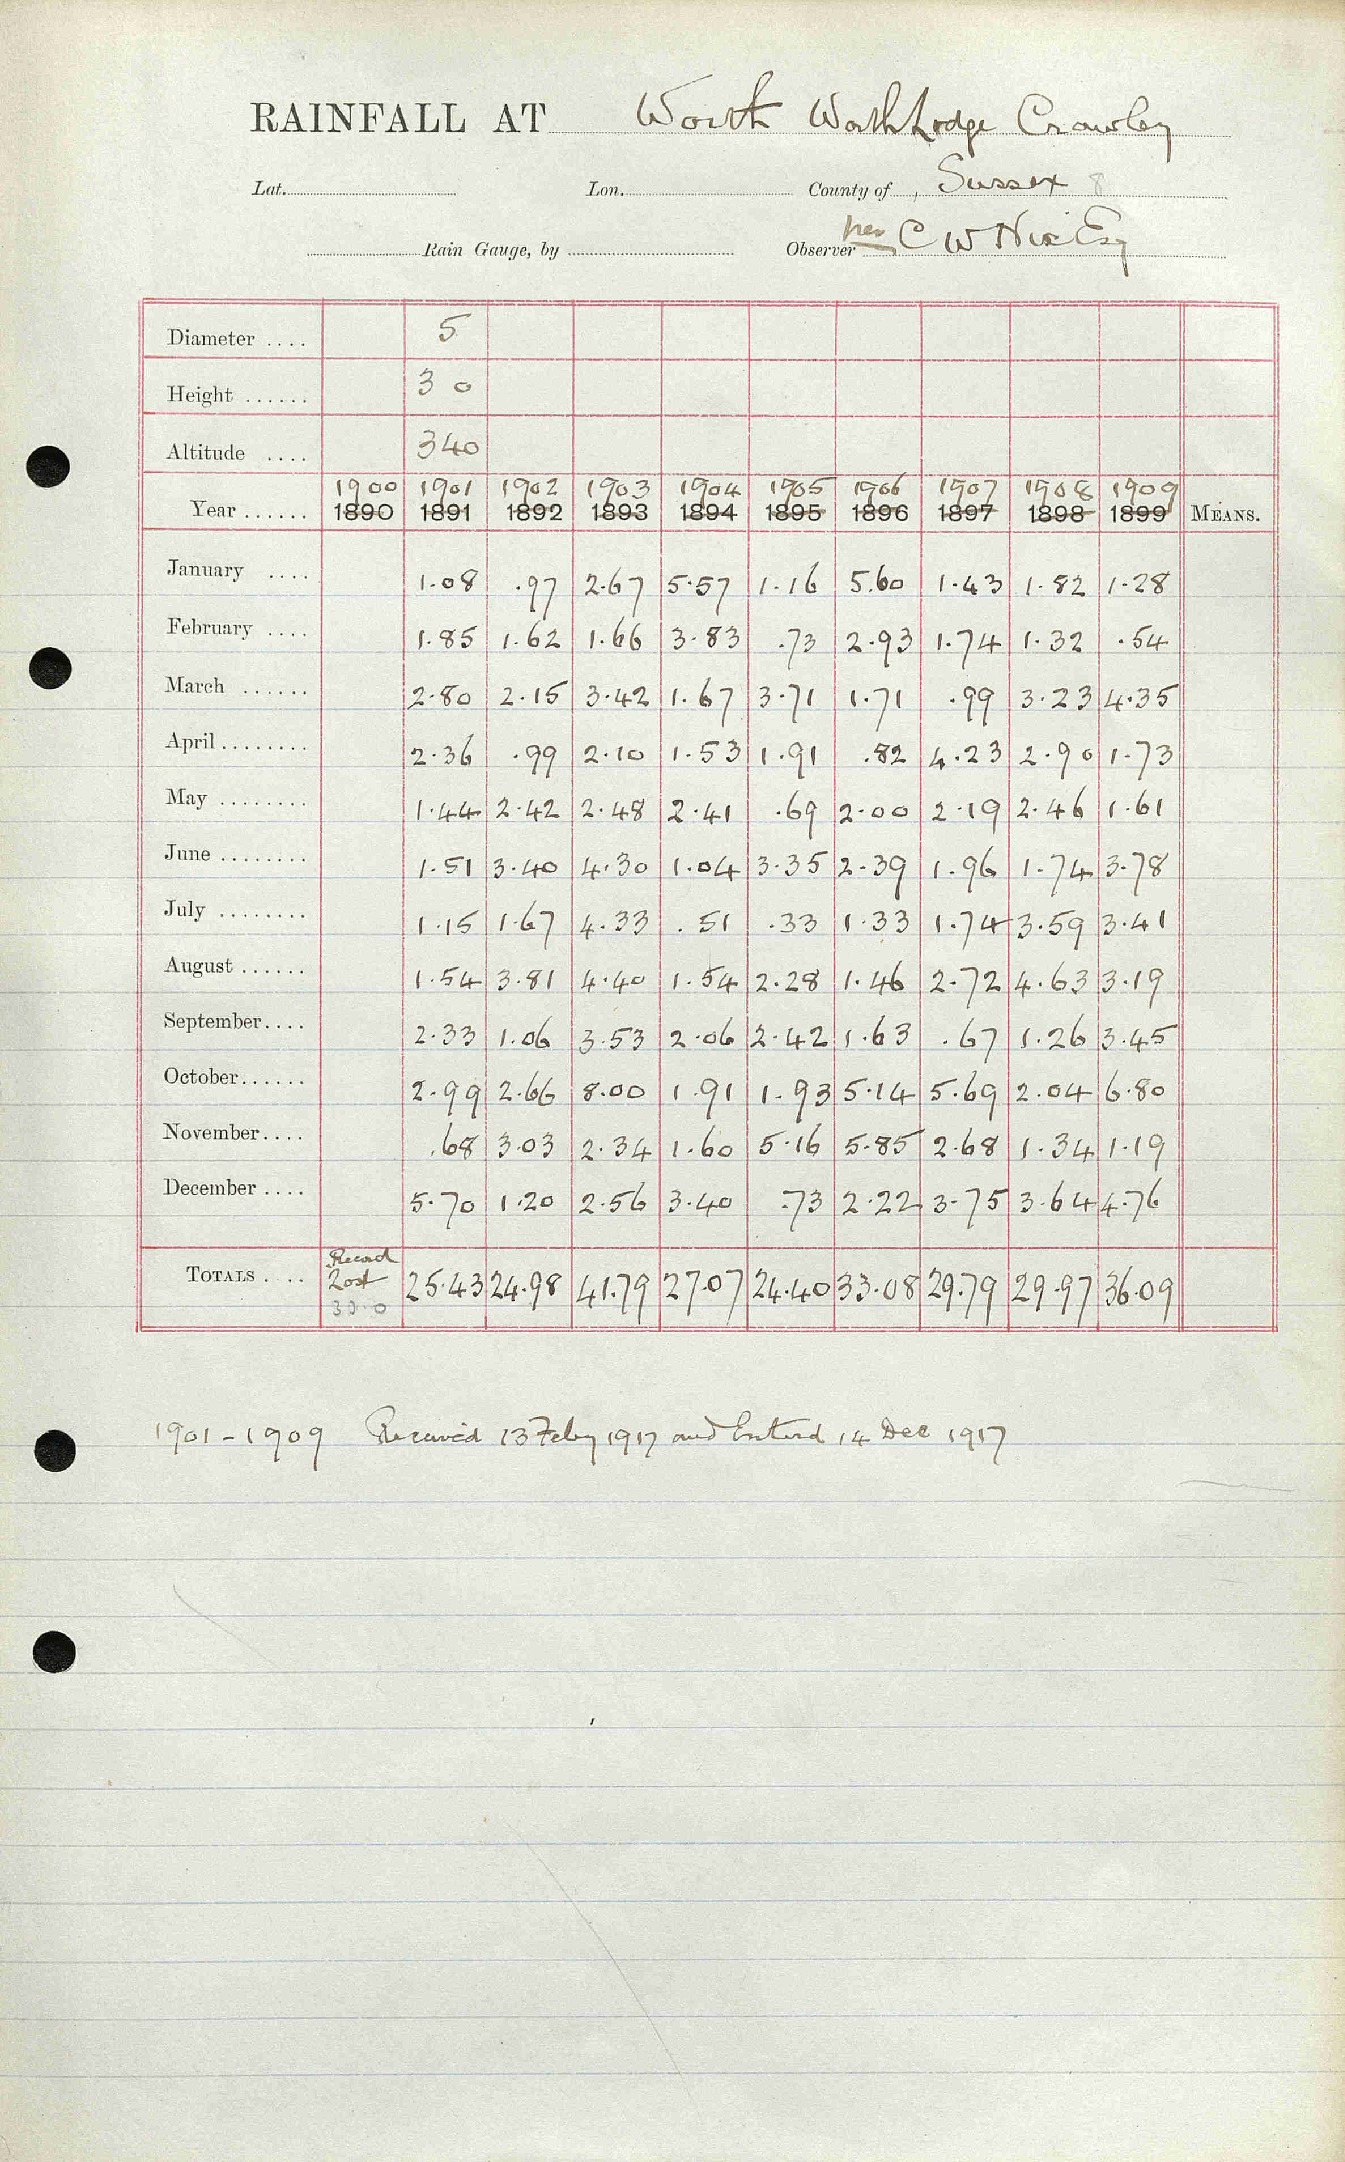 RAINFALL AT Worth Worth Lodge Crawley
Lat. Lon. County of Sussex 8
Rain Gauge, by Observer per C W Nix Esq
Diameter .... 5
Height ...... 3 0
Altitude .... 340
1900 1901 1902 1903 1904 1905 1906 1907 1908 1909
Year ...... 1890 1891 1892 1893 1894 1895 1896 1897 1898 1899 MEANS.
January .... 1.08 .97 2.67 5.57 1.16 5.60 1.43 1.82 1.28
February .... 1.85 1.62 1.66 3.83 .73 2.93 1.74 1.32 .54
March ...... 2.80 2.15 3.42 1.67 3.71 1.71 .99 3.23 4.35
April ........ 2.36 .99 2.10 1.53 1.91 .82 4.23 2.90 1.73
May ........ 1.44 2.42 2.48 2.41 .69 2.00 2.19 2.46 1.61
June ........ 1.51 3.40 4.30 1.04 3.35 2.39 1.96 1.74 3.78
July ........ 1.15 1.67 4.33 .51 .33 1.33 1.74 3.59 3.41
August ...... 1.54 3.81 4.40 1.54 2.28 1.46 2.72 4.63 3.19
September.... 2.33 1.06 3.53 2.06 2.42 1.63 .67 1.26 3.45
October...... 2.99 2.66 8.00 1.91 1.93 5.14 5.69 2.04 6.80
November.... .68 3.03 2.34 1.60 5.16 5.85 2.68 1.34 1.19
December .... 5.70 1.20 2.56 3.40 .73 2.22 3.75 3.64 4.76
Record
TOTALS .... Lost 25.43 24.98 41.79 27.07 24.40 33.08 29.79 29.97 36.09
30.0
1901-1909 Received 13 Feby 1917 and Entered 14 Dec 1917